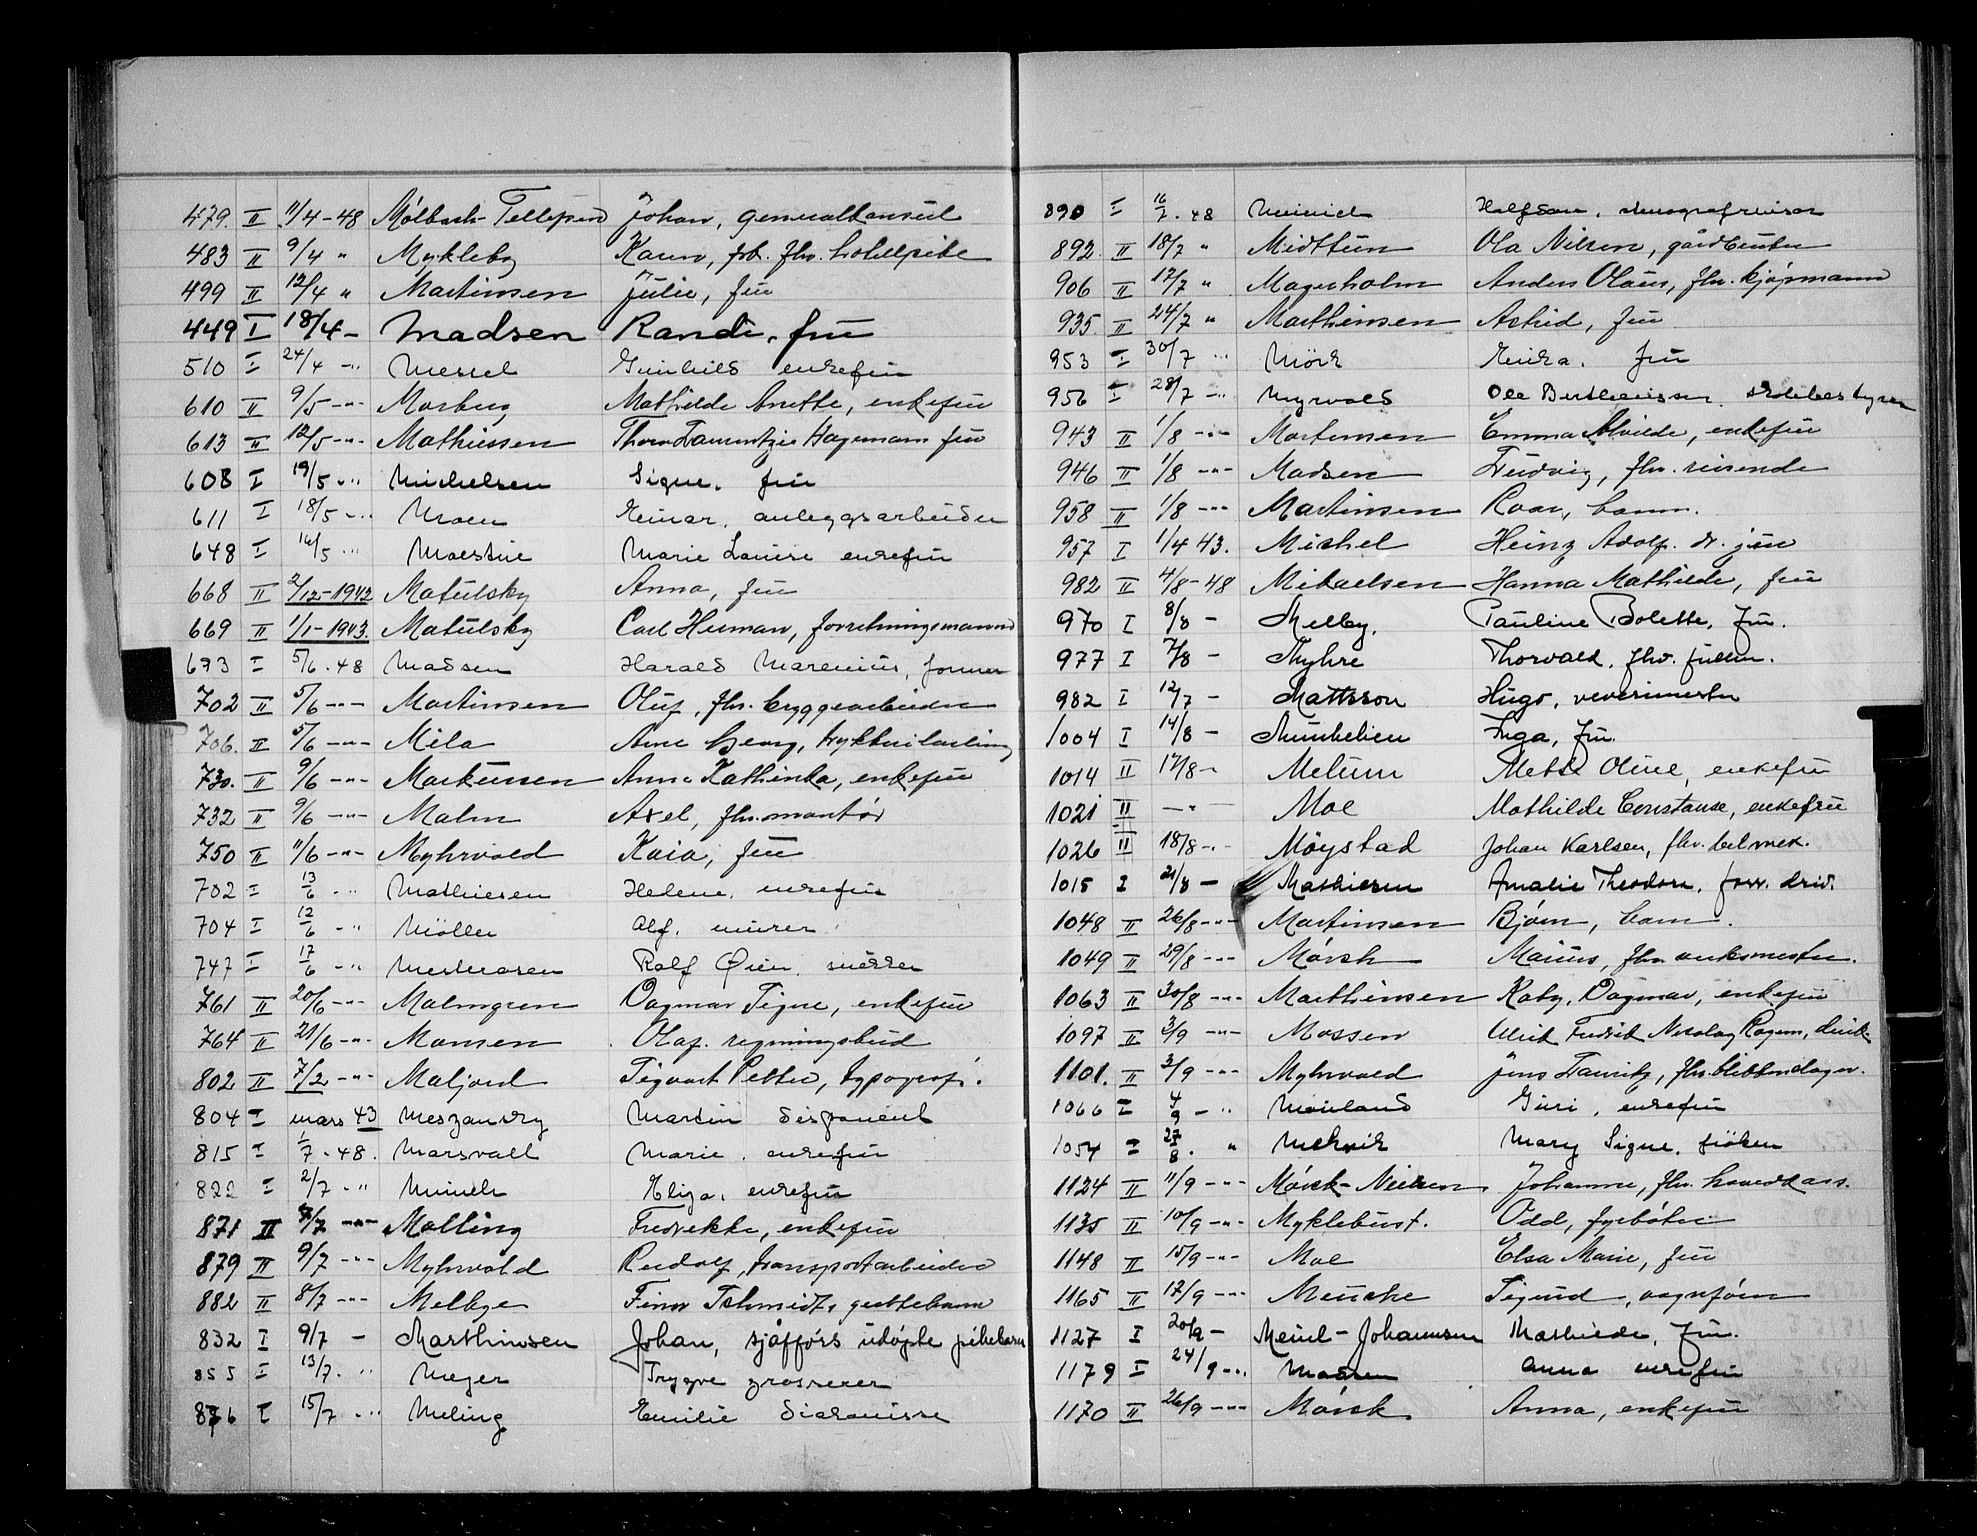 479. II 11/4-48 Mølbach-Tellefsen Johan, generalkonsul
483 II 9/4 " Mykleby Karen, frk. fhv. hotellpike
499 II 12/4 " Martinsen Julie, fru
449 I 18/4 - Madsen Randi, fru
510 I 24/4 -"- Messel Gunhild enkefru
610 II 9/5 -"- Morberg Mathilde Anette, enkefru
613 II 12/5 -"- Mathiessen Thora Hagemann fru
608 I 19/5 -"- Michelsen Signe, fru
611 I 18/5 -"- Moen Einar, anleggsarbeider
648 I 16/5 -"- Moestue Marie Louise enkefru
668 II 2/12-1942 Matulsky Anna, fru
669 II 1/1-1943. Matulsky Carl Herman, forretningsmann
673 I 5/6-48 Madsen Harald Marenius, former
702 II 5/6 -"- Martinsen Oluf, fhv. bryggearbeider
706. II 5/6 -"- Mila Arne Georg, trykkerilærling
730. II 9/6 -"- Markussen Anna Kathinka, enkefru
732 II 9/6 -"- Malm Axel, fhv. montør
750 II 11/6 -"- Myhrvold Kaia, fru
702 I 13/6 -"- Mathiesen Helene, enkefru
704 I 12/6 -"- Möller Alf, murer
747 I 17/6 -"- Rolf Øien, snekker
761 II 20/6 -"- Malmgren Dagmar Signe, enkefru
764 II 21/6 -"- Monsen Olaf. regningsbud
802 II 7/2 -"- Maljord Sigvart Petter, typograf.
804 I mars 43 Meszansky Martin disponent
815 I 1/7-48. Marsvall Marie, enkefru
822 I 2/7 -"- Munch Eliza, enkefru
871 II 7/7 -"- Molling Fredrikke, enkefru
879 II 9/7 -"- Myhrvold Rudolf, transportarbeider
882 II 8/7 -"- Melbye Finn Schmidt, guttebarn
832 I 9/7 - Marthinsen Johan, sjåfførs udøpte pikebarn
855 I 13/7 -"- Meyer Trygve grosserer
876 I 15/7 -"- Meling Emilie diakonisse
890 I 16/7-48 Halfdan, stenografrevisor
892. II 18/7 " Midttun Ola Nilsen, gårdbruker
906 II 17/7 " Magerholm Anders Olaus, fhv. kjøpmann
935. II 24/7 " Marthinsen Astrid, fru
953 I 30/7 -"- Mörk fru
956 I 28/7 -"- Myrvold Ole Bertheussen, skolebestyrer
943 II 1/8 -"- Mortensen Emma Alvilde, enkefru
946 II 1/8 -"- Madsen Ludvig, fhv. reisende
958 II 1/8 -"- Martinsen Roar, barn.
957 I 1/4 43. Michel Heinz Adolf. dr. jur
982 II 4/8-48 Mikaelsen Hanna Mathilde, fru
970 I 8/8 - Melby, Pauline Bolette, fru.
977 I 7/8 - Myhre Thorvald, fhv. fullm.
982 I 12/7 - Mattsson Hugo, verksmester
1004 I 14/8 - Munkelien Inga, fru
1014 II 17/8 - Melum Mette Oline, enkefru
1021 II -"- Moe Mathilde Constanse, enkefru
1026 II 18/8 -"- Møystad Johan Karlsen, fhv. bel.mek.
1015 I 21/8 - Mathiesen Amalie Theodora, forr. driv.
1048 II 26/8 -"- Martinsen Bjørn, barn.
1049 II 29/8 -"- Mørch Marius, fhv. verksmester.
1063 II 30/8 -"- Marthinsen Katy, Dagmar, enkefru
1097 II 3/9 -"- Mossen Ulrik Fredrik Nicolay Rogem, direk.
1101. II 3/9 -"- Myhrvold Jens Lauritz, fhv. blikkenslager.
1066 I 4/9 -"- Moiland Guri, enkefru
1054 I 27/8. " Mehvik Mary Signe, frøken
1124 II 11/9 -"- Mørck-Nielsen Johanne, fhv. hovedkass.
1135 II 10/9 -"- Myklebust. Odd, fyrbøter
1148 II 15/9 -"- Moe Elsa Marie, fru
1165 II 17/9 -"- Menche Sigurd, vognfører
1127 I 20/9 - Meinl-Johannsen Mathilde, fru.
1179 I 24/9 -"- Madsen Anna enkefru
1170 II 26/9 -"- Mørck Anna, enkefru